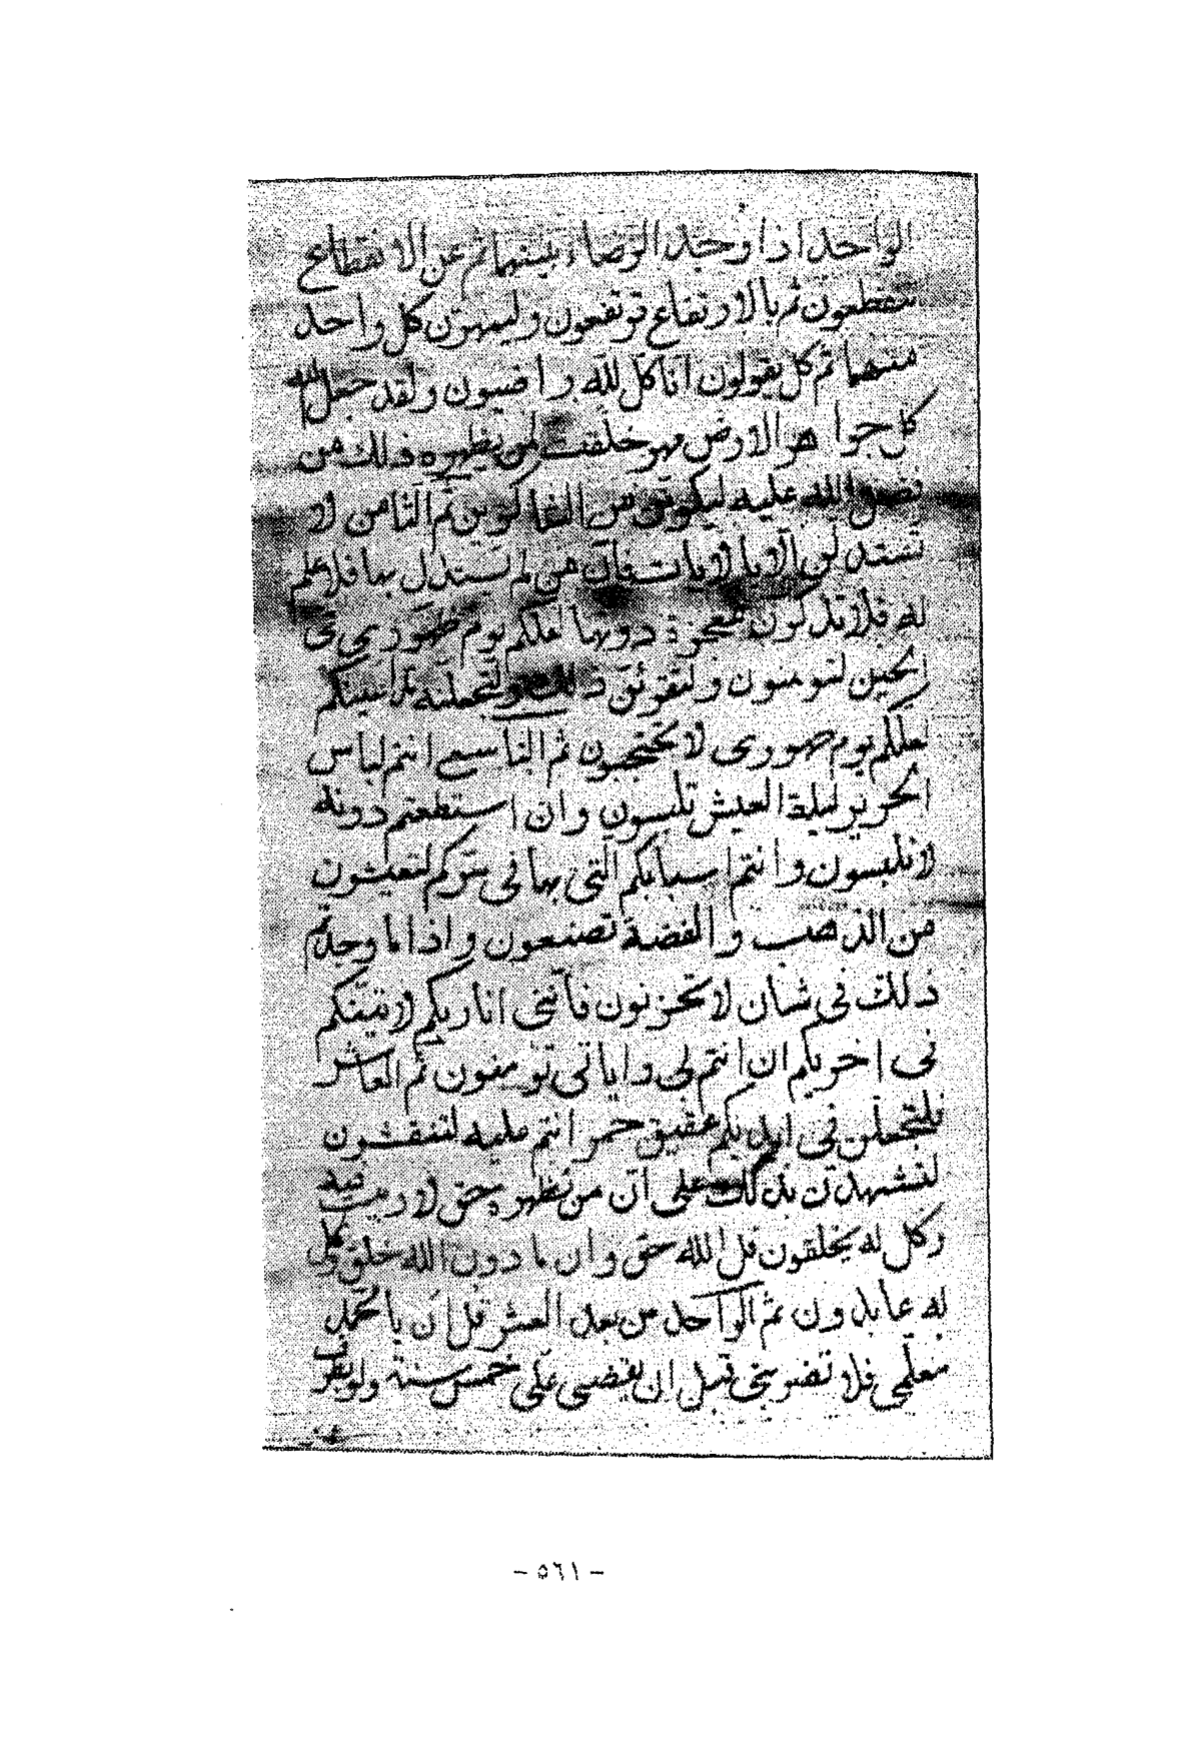 الواحد اذا وجد الرضاء بينهما ثم عن الانقطاع
ينقطعون ثم بالارتفاع ترتفعون وليمهرن كل واحد
منهما ثم كل يقولون انا كل لله راضيون ولقد جعل الله
كل جواهر الارض مهر خلقت لمن يظهره ذلك من
فضل الله عليه ليكونن من الشاكرين ثم الثامن لا
تستدلن الا بالايات فان من لم يستدل بها فلا علم
له فلا تذكرون معجزة دونها لعلكم يوم ظهوري في
الحين لتؤمنون ولتقرئن ذلك ولتجعلنه بين اعينكم
لعلكم يوم ظهوري لا تحتجبون ثم التاسع انتم لباس
الحرير ليلة العيش تلبسون وان استطعتم دونه
لا تلبسون وانتم اسبابكم التي بها في سركم لتعيشون
من الذهب والفضة تصنعون واذا ما وجدتم
ذلك في شان لا تحزنون فانني انا ربكم لاتينكم
في اخريكم ان انتم بي واياتي تؤمنون ثم العاشر
فلتجعلن في ايديكم عقيق حمر انتم عليه لتنقشون
لتشهدن بذلك على ان من نظهره حق لا ريب فيه
وكل له يخلقون قل الله حق وان ما دون الله خلق وكل
له عابدون ثم الواحد من بعد العشر قل ان يا محمد
معلمي فلا تضربني قبل ان يقضى علي خمس سنة ولو بطرف
- ٥٦١ -